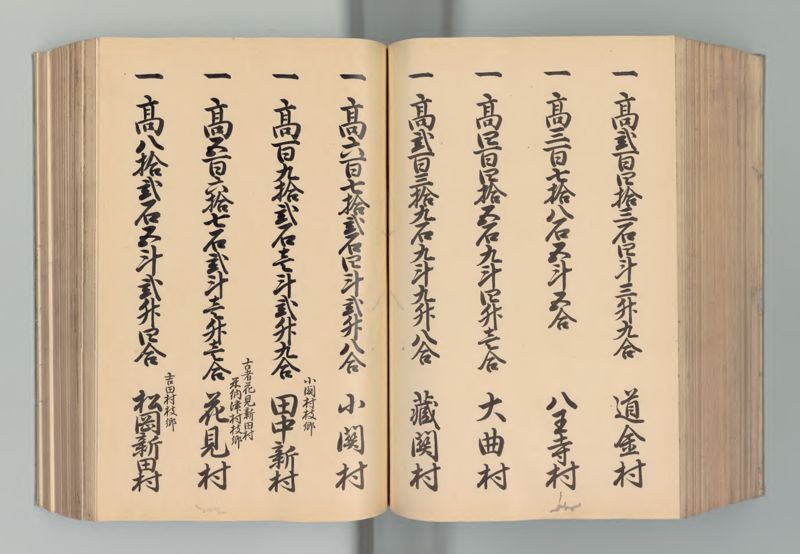 一 高弐百四拾三石四斗三升九合 道金村
一 高三百七拾八石五斗五合 八王寺村
一 高四百四拾五石九斗四升壱合 大曲村
一 高弐百三拾九石九斗九升八合 蔵関村
一 高六百七拾弐石四斗弐升八合 小関村
小関村枝郷
一 高百九拾弐石壱斗弐升九合 田中新村
古者花見新田村
米納津村枝郷
一 高五百六拾七石弐斗壱升壱合 花見村
吉田村枝郷
一 高八拾弐石五斗弐升四合 松岡新田村